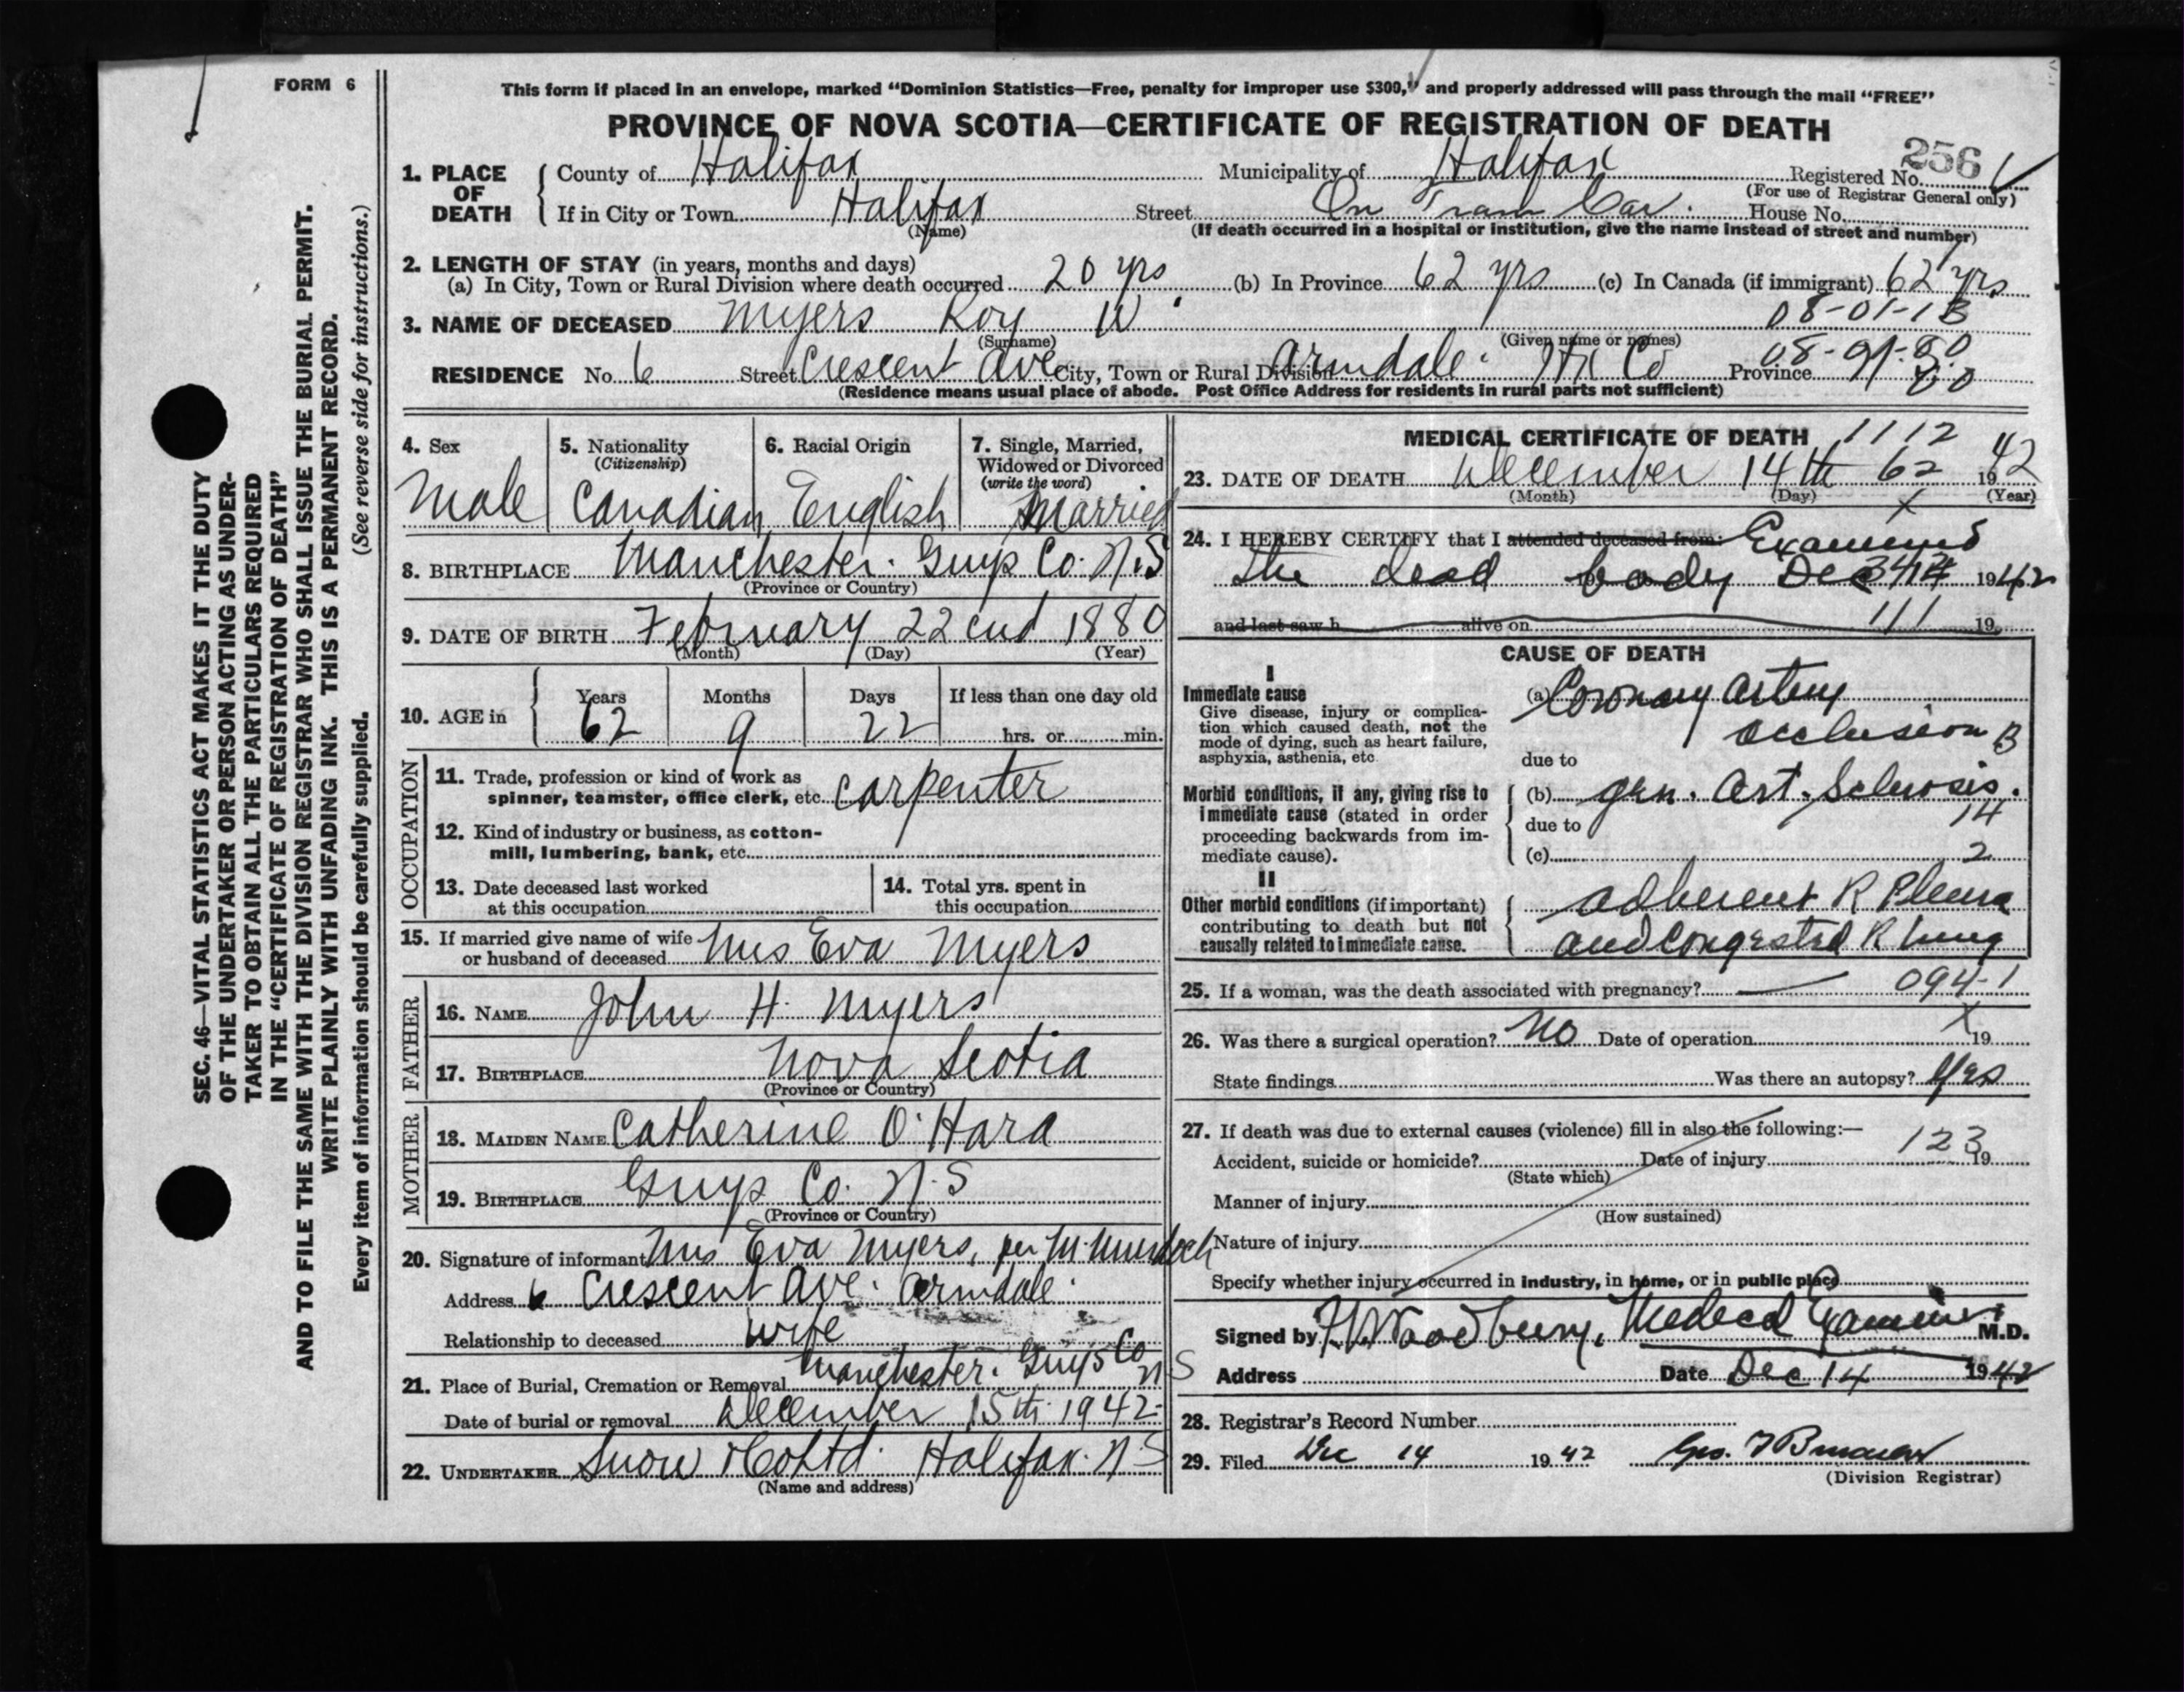 FORM 6
This form if placed in an envelope, marked "Dominion Statistics—Free, penalty for improper use $300," and properly addressed will pass through the mail "FREE"
PROVINCE OF NOVA SCOTIA—CERTIFICATE OF REGISTRATION OF DEATH
256
1. PLACE OF DEATH County of Halifax Municipality of Halifax Registered No.
(For use of Registrar General only)
If in City or Town Halifax Street On Tram Car. House No.
(Name) (If death occurred in a hospital or institution, give the name instead of street and number)
2. LENGTH OF STAY (in years, months and days)
(a) In City, Town or Rural Division where death occurred 20 yrs (b) In Province 62 yrs (c) In Canada (if immigrant) 62 yrs
08-01-13
3. NAME OF DECEASED Myers Roy W
(Surname) (Given name or names)
08-01-80
RESIDENCE No. 6 Street Crescent Ave City, Town or Rural Division Armdale. Hfx Co Province N.S.
80
(Residence means usual place of abode. Post Office Address for residents in rural parts not sufficient)
4. Sex
Male
5. Nationality
(Citizenship)
Canadian
6. Racial Origin
English
7. Single, Married,
Widowed or Divorced
(write the word)
Married
8. BIRTHPLACE Manchester. Guys Co. N.S
(Province or Country)
9. DATE OF BIRTH February 22end 1880
(Month) (Day) (Year)
10. AGE in Years Months Days If less than one day old
62 9 22 hrs. or min.
OCCUPATION
11. Trade, profession or kind of work as
spinner, teamster, office clerk, etc. carpenter
12. Kind of industry or business, as cotton-
mill, lumbering, bank, etc.
13. Date deceased last worked
at this occupation
14. Total yrs. spent in
this occupation
15. If married give name of wife
or husband of deceased Mrs Eva Myers
FATHER
16. NAME John H. Myers
17. BIRTHPLACE Nova Scotia
(Province or Country)
MOTHER
18. MAIDEN NAME Catherine O'Hara
19. BIRTHPLACE Guys Co. N.S
(Province or Country)
20. Signature of informant Mrs Eva Myers, per M. Murdoch
Address 6 Crescent Ave. Armdale.
Relationship to deceased wife
21. Place of Burial, Cremation or Removal Manchester. Guys Co NS
Date of burial or removal December 15th 1942
22. UNDERTAKER Snow & Co Ltd. Halifax. N.S
(Name and address)
MEDICAL CERTIFICATE OF DEATH 1112
23. DATE OF DEATH December 14th 62 1942
(Month) (Day) (Year)
X
24. I HEREBY CERTIFY that I attended deceased from: Examined
the dead body Dec 14 1942
and last saw h alive on 111 19
CAUSE OF DEATH
I
Immediate cause
Give disease, injury or complica-
tion which caused death, not the
mode of dying, such as heart failure,
asphyxia, asthenia, etc
(a) Coronary Artery
occlusion B
due to
Morbid conditions, if any, giving rise to
immediate cause (stated in order
proceeding backwards from im-
mediate cause).
(b) gen. Art. Sclerosis.
14
due to
(c) 2
II
Other morbid conditions (if important)
contributing to death but not
causally related to immediate cause.
adherent R Pleura
and congested R lung
25. If a woman, was the death associated with pregnancy? — 094-1
X
26. Was there a surgical operation? No Date of operation 19
State findings Was there an autopsy? Yes
27. If death was due to external causes (violence) fill in also the following:—
123
Accident, suicide or homicide? Date of injury 19
(State which)
Manner of injury
(How sustained)
Nature of injury
Specify whether injury occurred in industry, in home, or in public place
Signed by Woodbury, Medical Examiner M.D.
Address Date Dec 14 1942
28. Registrar's Record Number
29. Filed Dec 14 1942 Geo.
(Division Registrar)
SEC. 46—VITAL STATISTICS ACT MAKES IT THE DUTY
OF THE UNDERTAKER OR PERSON ACTING AS UNDER-
TAKER TO OBTAIN ALL THE PARTICULARS REQUIRED
IN THE "CERTIFICATE OF REGISTRATION OF DEATH"
AND TO FILE THE SAME WITH THE DIVISION REGISTRAR WHO SHALL ISSUE THE BURIAL PERMIT.
WRITE PLAINLY WITH UNFADING INK. THIS IS A PERMANENT RECORD.
Every item of information should be carefully supplied. (See reverse side for instructions.)